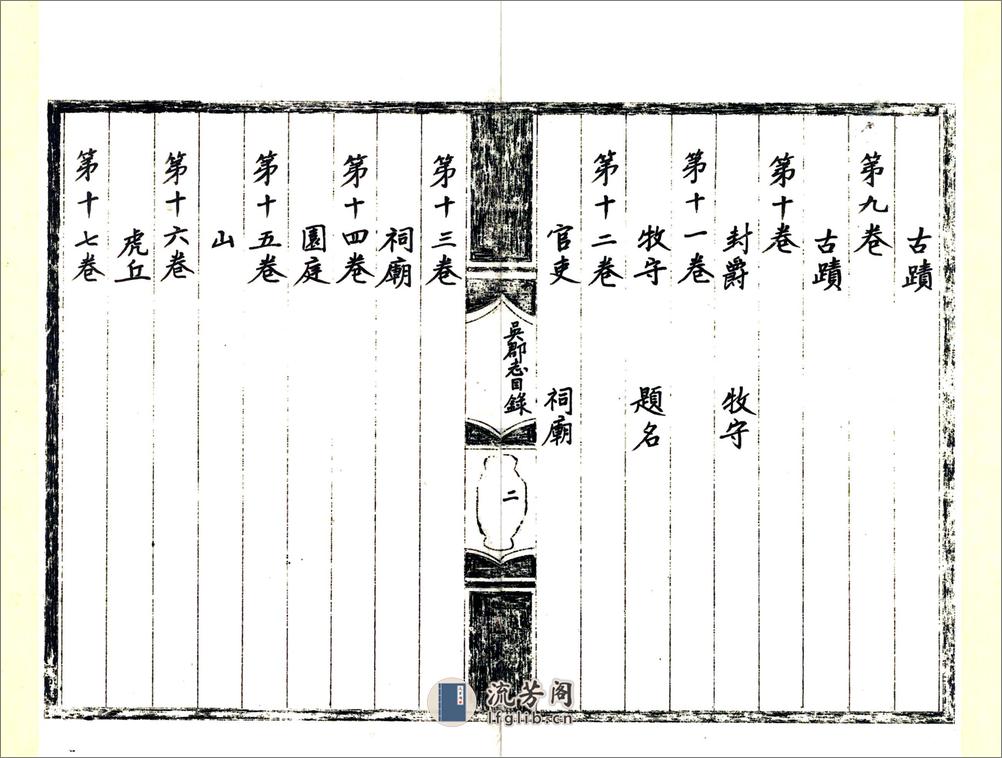 古蹟
第九卷
古蹟
第十卷
封爵 牧守
第十一卷
牧守 題名
第十二卷
官吏 祠廟
吳郡志目錄
二
第十三卷
祠廟
第十四卷
園庭
第十五卷
山
第十六卷
虎丘
第十七卷
流芳阁
lfglib.cn